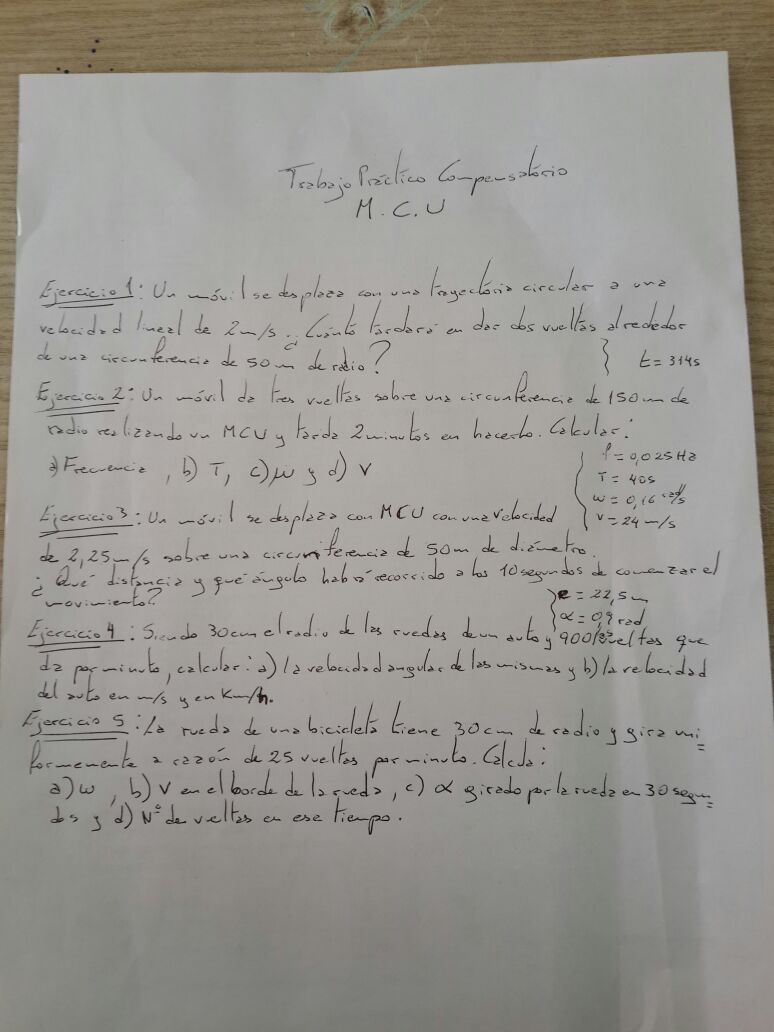 Trabajo Práctico Compensatório
M.C.U
Ejercicio 1: Un móvil se desplaza con una trayectória circular a una
velocidad lineal de 2m/s. ¿Cuánto tardará en dar dos vueltas alrededor
de una circunferencia de 50m de radio?
t= 314s
Ejercicio 2: Un móvil da tres vueltas sobre una circunferencia de 150m de
radio realizando un MCU y tarda 2 minutos en hacerlo. Calcular:
a) Frecuencia, b) T, c) w y d) V
f= 0,025Hz
T= 40s
w= 0,16 rad/s
v= 24 m/s
Ejercicio 3: Un móvil se desplaza con MCU con una velocidad
de 2,25m/s sobre una circunferencia de 50m de diámetro.
¿Qué distancia y qué ángulo habrá recorrido a los 10 segundos de comenzar el
movimiento?
e = 22,5m
α = 0,9 rad
Ejercicio 4: Siendo 30cm el radio de las ruedas de un auto y 900 vueltas que
da por minuto, calcular: a) la velocidad angular de las mismas y b) la velocidad
del auto en m/s y en Km/h.
Ejercicio 5: La rueda de una bicicleta tiene 30cm de radio y gira uni
formemente a razón de 25 vueltas por minuto. Calcula:
a) w, b) V en el borde de la rueda, c) α girado por la rueda en 30 segun
dos y d) Nº de vueltas en ese tiempo.